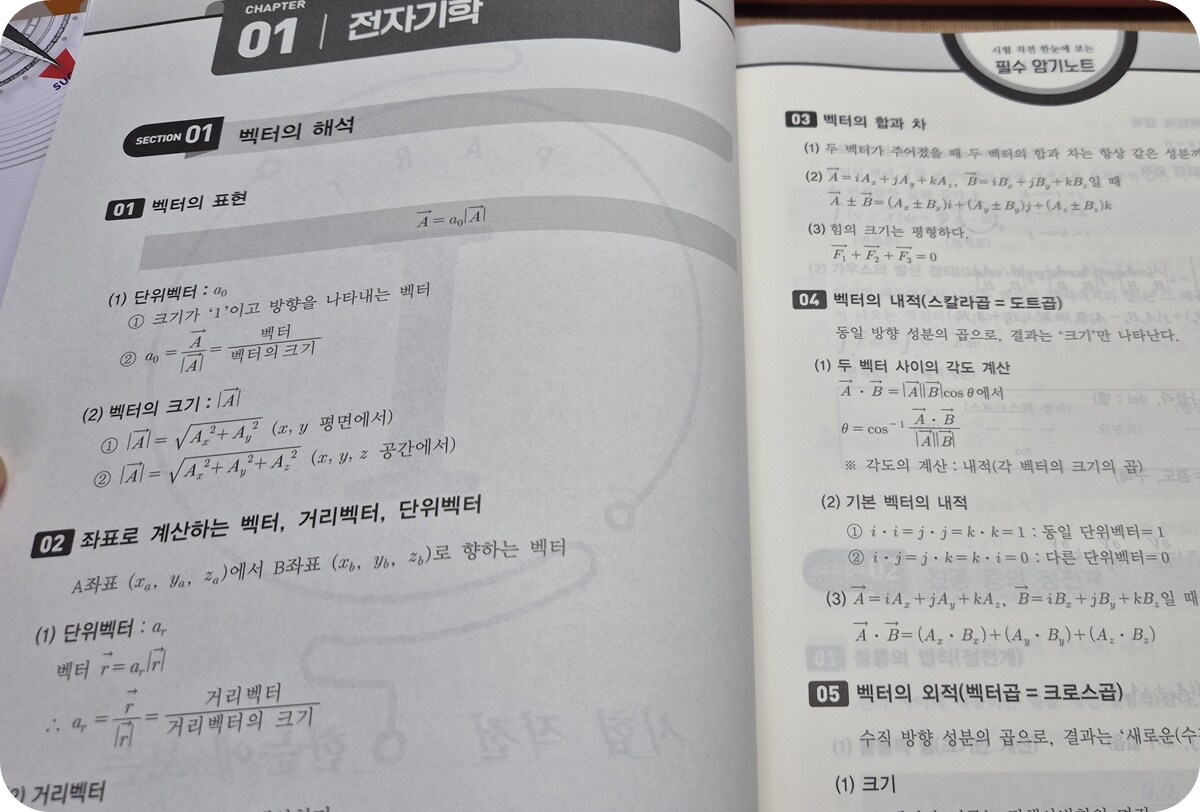 CHAPTER
01 | 전자기학
SECTION 01 벡터의 해석
01 벡터의 표현
$\vec{A} = a_0|\vec{A}|$
(1) 단위벡터 : $a_0$
① 크기가 '1'이고 방향을 나타내는 벡터
② $a_0 = \frac{\vec{A}}{|\vec{A}|} = \frac{벡터}{벡터의 크기}$
(2) 벡터의 크기 : $|\vec{A}|$
① $|\vec{A}| = \sqrt{A_x^2 + A_y^2}$ (x, y 평면에서)
② $|\vec{A}| = \sqrt{A_x^2 + A_y^2 + A_z^2}$ (x, y, z 공간에서)
02 좌표로 계산하는 벡터, 거리벡터, 단위벡터
A좌표 $(x_a, y_a, z_a)$에서 B좌표 $(x_b, y_b, z_b)$로 향하는 벡터
(1) 단위벡터 : $a_r$
벡터 $\vec{r} = a_r|\vec{r}|$
∴ $a_r = \frac{\vec{r}}{|\vec{r}|} = \frac{거리벡터}{거리벡터의 크기}$
2) 거리벡터
시험 직전 한눈에 보는
필수 암기노트
03 벡터의 합과 차
(1) 두 벡터가 주어졌을 때 두 벡터의 합과 차는 항상 같은 성분
(2) $\vec{A} = iA_x + jA_y + kA_z$, $\vec{B} = iB_x + jB_y + kB_z$일 때
$\vec{A} \pm \vec{B} = (A_x \pm B_x)i + (A_y \pm B_y)j + (A_z \pm B_z)k$
(3) 힘의 크기는 평형하다.
$\vec{F_1} + \vec{F_2} + \vec{F_3} = 0$
04 벡터의 내적(스칼라곱 = 도트곱)
동일 방향 성분의 곱으로, 결과는 '크기'만 나타난다.
(1) 두 벡터 사이의 각도 계산
$\vec{A} \cdot \vec{B} = |\vec{A}||\vec{B}|\cos\theta$에서
$\theta = \cos^{-1}\frac{\vec{A} \cdot \vec{B}}{|\vec{A}||\vec{B}|}$
※ 각도의 계산 : 내적(각 벡터의 크기의 곱)
(2) 기본 벡터의 내적
① $i \cdot i = j \cdot j = k \cdot k = 1$ : 동일 단위벡터 = 1
② $i \cdot j = j \cdot k = k \cdot i = 0$ : 다른 단위벡터 = 0
(3) $\vec{A} = iA_x + jA_y + kA_z$, $\vec{B} = iB_x + jB_y + kB_z$일 때
$\vec{A} \cdot \vec{B} = (A_x \cdot B_x) + (A_y \cdot B_y) + (A_z \cdot B_z)$
05 벡터의 외적(벡터곱 = 크로스곱)
수직 방향 성분의 곱으로, 결과는 '새로운(수
(1) 크기